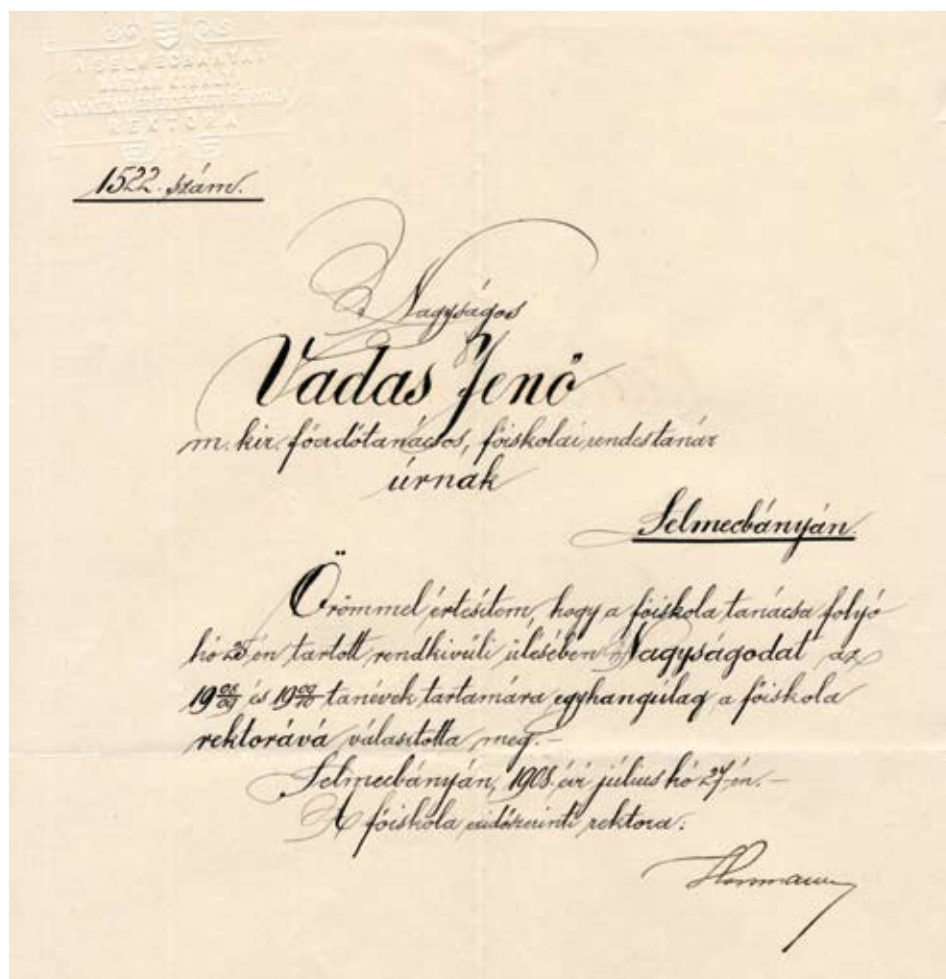 A SELMECBÁNYAI
REKTORA
1522. szám.
Nagyságos
Vadas Jenő
m. kir. főerdőtanácsos, főiskolai rendes tanár
úrnak
Selmecbányán.
Örömmel értesítem, hogy a főiskola tanácsa folyó
hó 25 én tartott rendkivüli ülésében Nagyságodat az
19 08/09 és 19 09/10 tanévek tartamára egyhangúlag a főiskola
rektorává választotta meg.-
Selmecbányán, 1908. évi július hó 27-én.-
A főiskola ezidőszerinti rektora:
Hermann